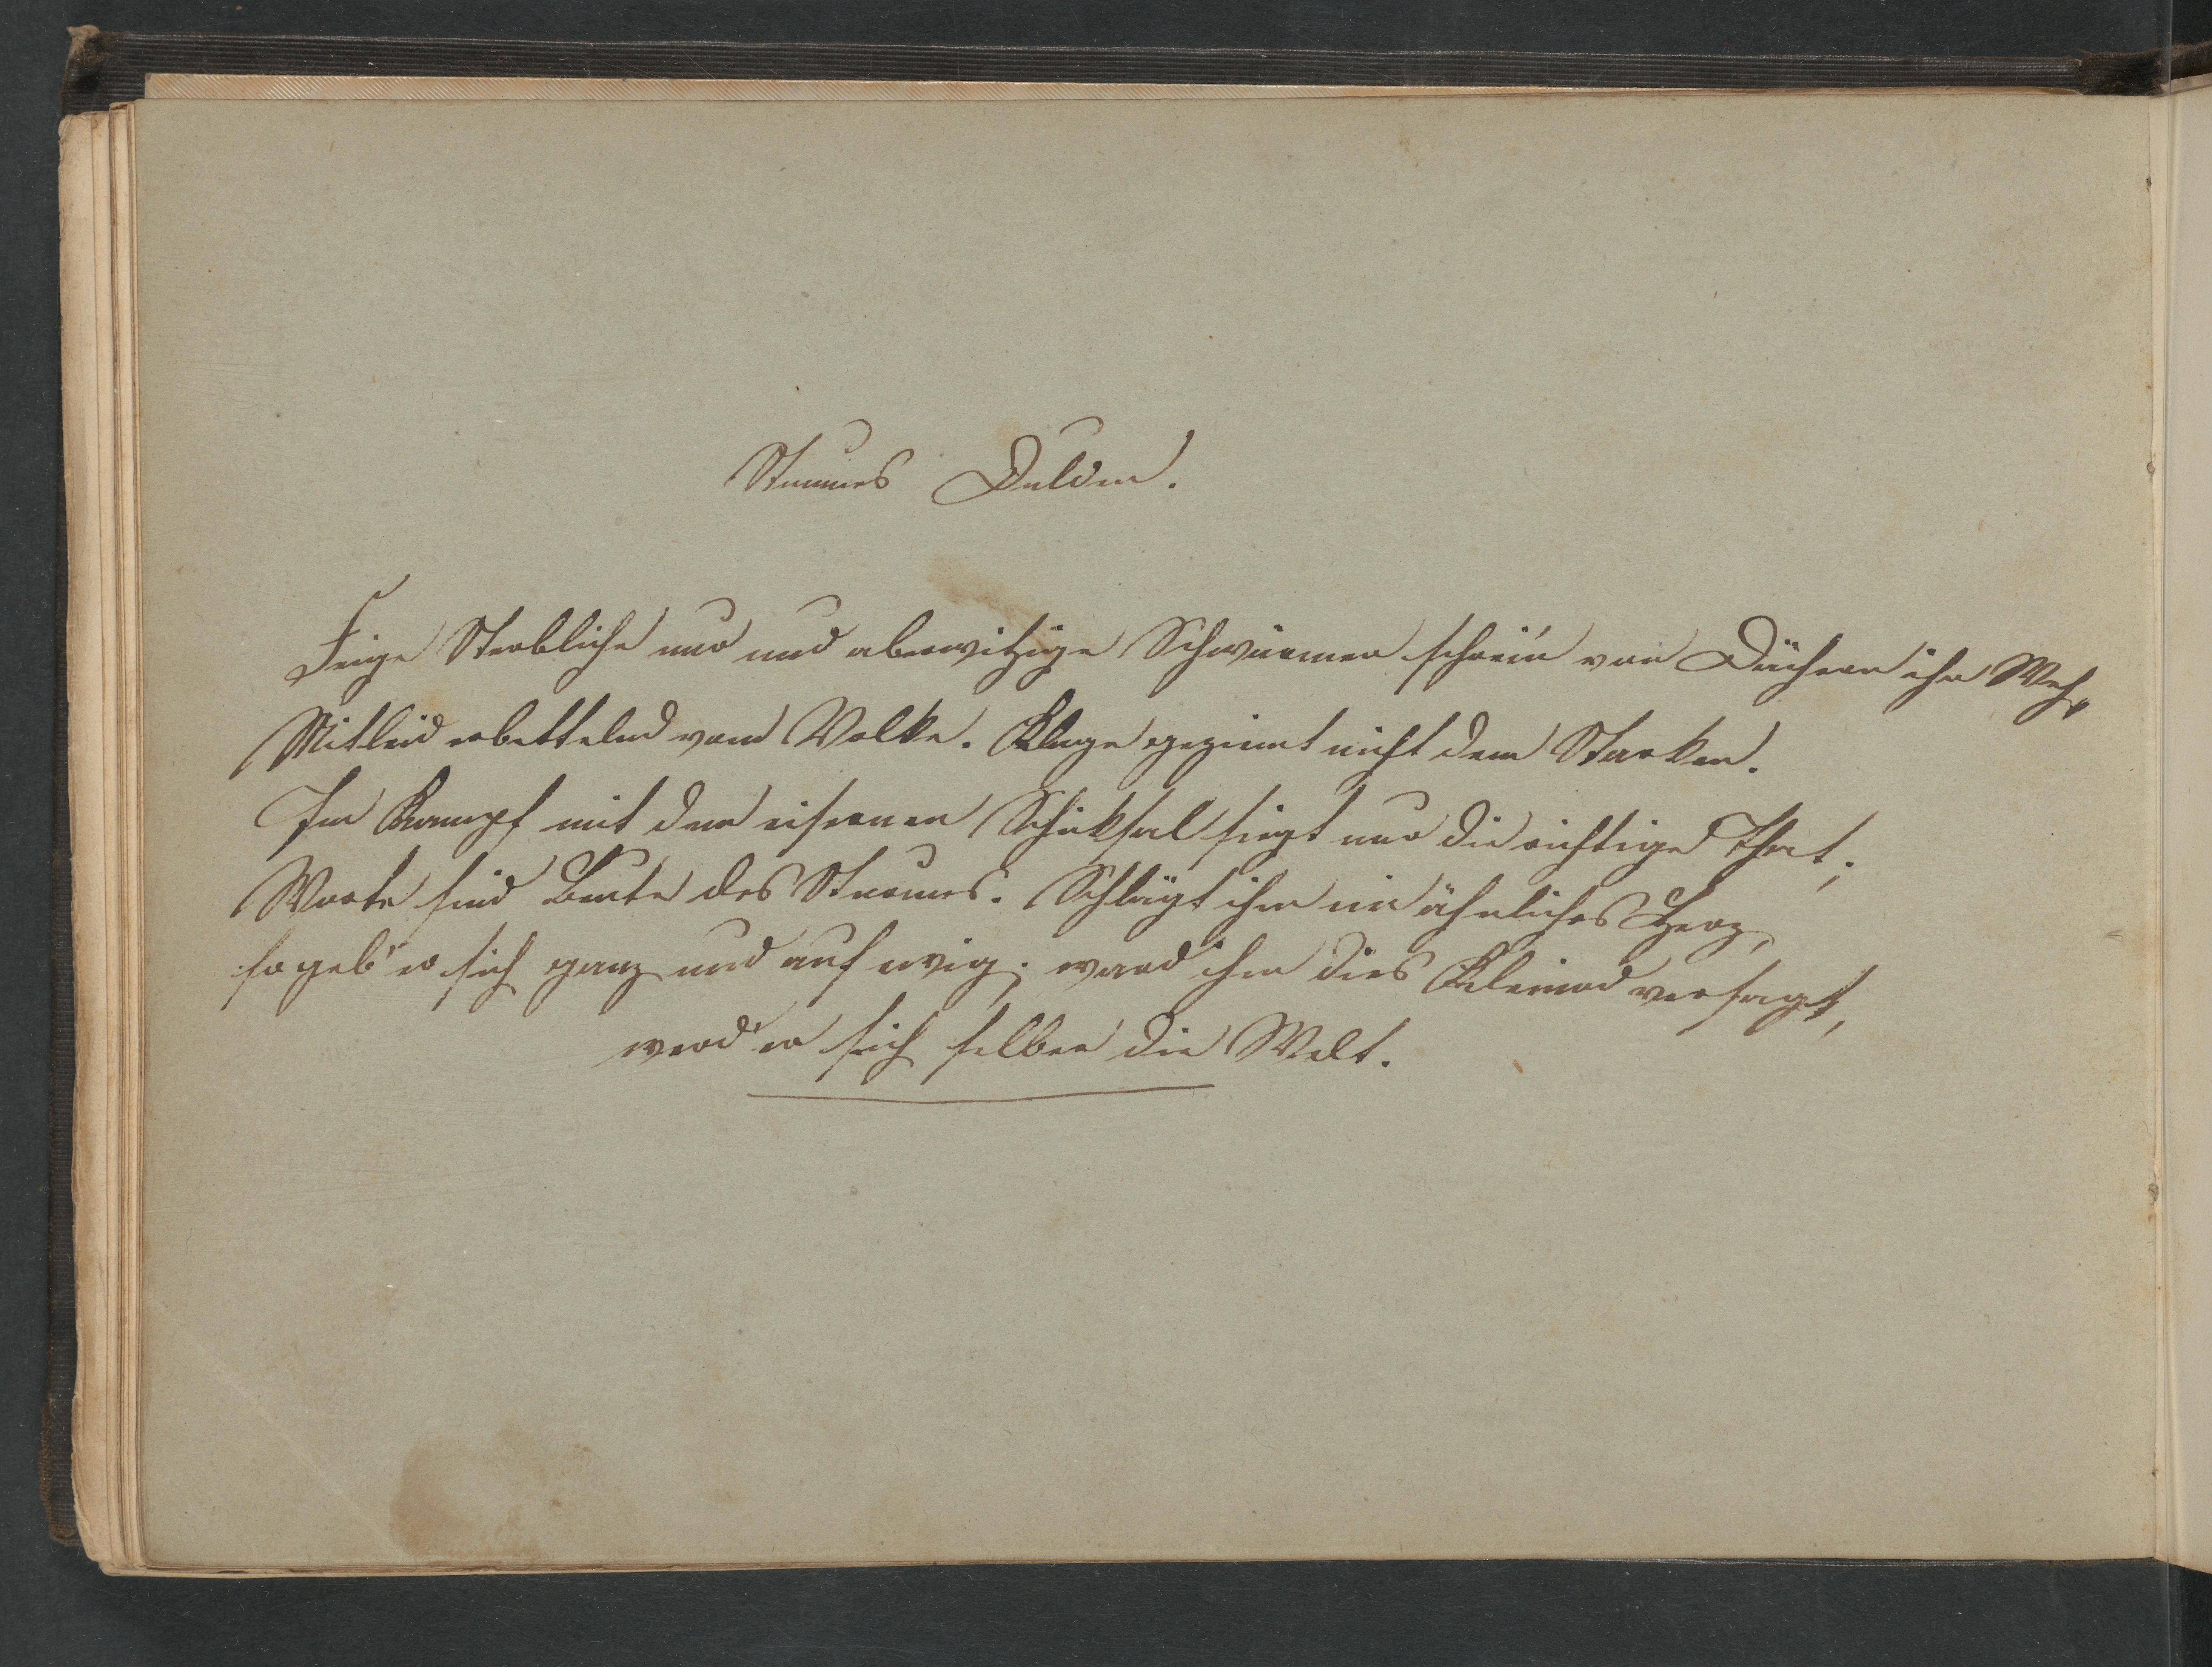 Stummes Dulden.
Feige Sterbliche nur und aberwitzige Schwärmer schrei'n von Dächern ihr Weh,
Mitleid erbettelnd vom Volke. Klage geziemt nicht dem Starken.
Im Kampf mit dem eisernen Schicksal siegt nur die richtige That;
Worte sind Beute des Sturmes. Schlägt ihm ein ähnliches Herz,
so geb' er sich ganz und auf ewig; ward ihm dies Kleinod versagt,
werd' er sich selber die Welt.